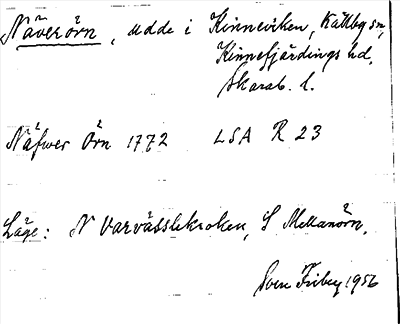 Näverörn, udde i Kinneviken, Källby sn,
Kinnefjärdings hd,
Skarab. l.
Näfwer Örn 1772 LSA R 23
Läge: N Varvässlekroken, S Mellanörn.
Sven Friberg 1956